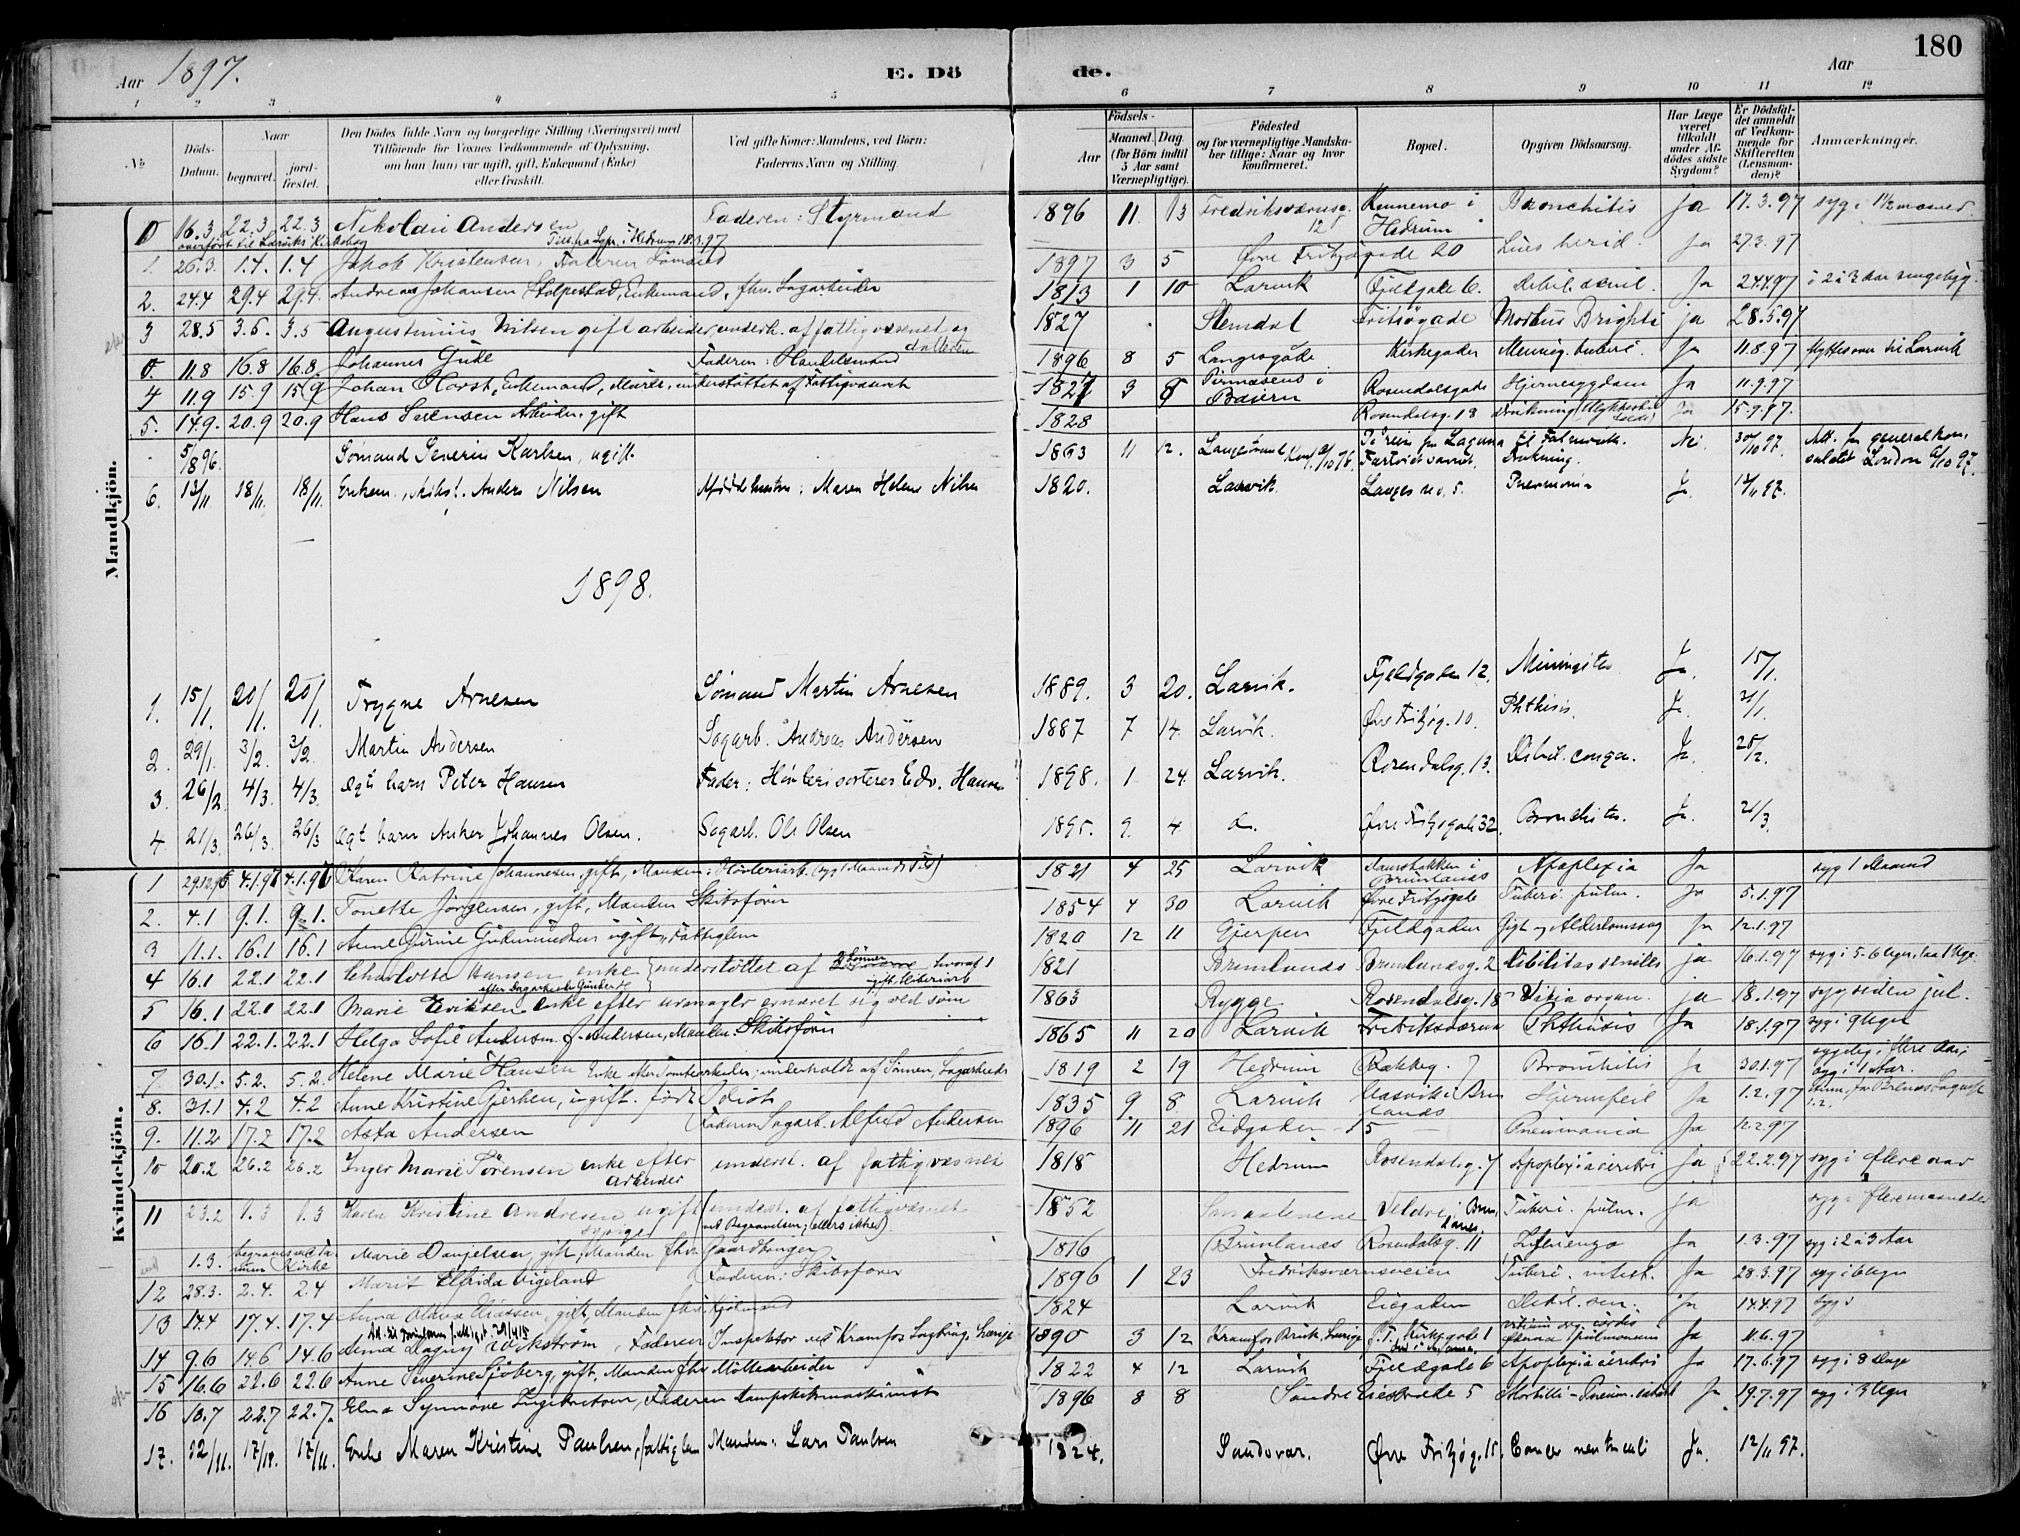 180
Aar 1897. E. Dö de. Aar
1 2 3 4 5 6 7 8 9 10 11 12
No
Döds-Datum.
Naar
begravet.
jordfæstet.
Den Dödes fulde Navn og borgerlige Stilling (Næringsvei) med Tilföiende for Voxnes Vedkommende af Oplysning, om han (hun) var ugift, gift, Enkemand (Enke) eller fraskilt.
Ved gifte Koner: Mandens, ved Börn: Faderens Navn og Stilling.
Födsels-
Aar
Maaned. Dag.
(for Börn indtil 5 Aar samt Værnepligtige).
Födested og for værnepligtige Mandskaber tillige: Naar og hvor konfirmeret.
Bopæl.
Opgiven Dödsaarsag.
Har Læge været tilkaldt under Afdödes sidste Sygdom?
Er Dödsfaldet anmeldt af Vedkommende for Skifteretten (Lensmanden)?
Anmærkninger.
Mandkjön.
0 16.3 22.3 22.3 Nikolai Andersen Faderen: Styrmand 1896 11 13 Fredriksværnsg. 12 Hedrum Bronchitis Ja 17.3.97 syg i 1½ maaned
overført til Larviks Kirkebog
1. 26.3. 1.4. 1.4 Jakob Kristensen, Faderen Sømand 1897 3 5 Øvre Fritzøgade 20 Lues herid. Ja 27.3.97
2. 24.4 29.4 29.4. Andreas Johansen Stolpestad, Enkemand, fhv. Sagarbeider 1813 1 10 Larvik Fjeldgade 6. Debil. senil. Ja 24.4.97 i 2 à 3 Aar sengeligg.
3 28.5 3.6. 3.5 Augustinius Nilsen gift arbeider underh. af fattigvæsenet og datteren 1827 Slemdal Fritzøgade Morbus Brightii ja 28.5.97
0. 11.8 16.8 16.8 Johannes Gude Faderen: Handelsmand 1896 8 5 Langesgade Kirkegaden Mening. tuberc. Ja 11.8.97 flyttes over til Larvik
4 11.9 15.9 15.9 Johan Horst, Enkemand, Murer, understøttet af Fattigvæsnet 1827 3 8 Pirmasens i Baiern Rosendalsgade Hjernesygdom Ja 11.9.97
5. 14.9. 20.9 20.9 Hans Sørensen Arbeider, gift 1828 Rosendalsg. 13 Drukning Ja 15.9.97.
5/8 96. Sømand Severin Karlsen, ugift. 1863 11 12. Langesund Drukning. Nei 30/10 97. Att. fra generalkonsulatet London 6/10 97.
6. 13/11 18/11 18/11 Enkem., Anders Nilsen Maren Helene Nilsen 1820. Larvik. Langes no. 5. Pneumonia Ja. 14/11 97.
1898.
1. 15/1. 20/1. 20/1. Trygve Arnesen Sømand Martin Arnesen 1889. 3 20. Larvik. Fjeldgaden 12. Meningites Ja. 15/1
2. 29/1. 3/2. 3/2. Martin Andersen Sagarb. Andreas Andersen 1887 7 14. Larvik. Øvre Fritzøg. 10. Phthisis. Ja. 31/1.
3. 26/2 4/3. 4/3. Ægte barn Peter Hansen Fader: Høvlerisorterer Edv. Hansen 1898. 1 24. Larvik. Rosendalsg. 13. Debil. congen. Ja. 28/2.
4. 21/3. 26/3. 26/3 Ægt. barn Anker Johannes Olsen. Sagarb. Ole Olsen 1895. 9. 4 do. Øvre Fritzøgade 32. Bronchites. Ja. 21/3.
Kvindekjön.
1 29.12.96 4.1.97 4.1.97 Karen Katrine Johannesen, gift, Manden: Høvleriarb. 1821 4 25 Larvik Brunlanæs Apoplexia Ja syg 1 Maaned
2. 4.1 9.1. 9.1. Tonette Jørgensen, gift, Manden Skibsfører 1854 4 30 Larvik Øvre Fritzøgade Tuberc. pulm. Ja 5.1.97
3 11.1. 16.1 16.1 Anne Gurine Gudmundsen ugift, Fattiglem 1820 12 11 Gjerpen Fjeldgaden Gigt og Alderdomssvag Ja 12.1.97
4 16.1 22.1 22.1 Charlotte Hansen enke understøttet af 2 Sønner hvoraf 1 gift Høvleriarb 1821 Brunlanæs Brunlanæsg. 2 Debilitas seniles ja 16.1.97
5 16.1 22.1 22.1 Marie Eriksen enke efter urmager ernæret sig ved søm 1863 Rygge Rosendalsg. 18 Vitia organ. ja 18.1.97 syg siden jul.
6 16.1 22.1. 22.1 Helga Sofie Andersen f. Andersen, Manden Skibsfører 1865 11 20 Larvik Fredriksværnsv Phthisis Ja 18.1.97 syg i 9 Uger
7 30.1. 5.2. 5.2 Helene Marie Hansen Enke efter Tomtearbeider; underholdt af Sønnen, Sagarbeider 1819 2 19 Hedrum Bakkeg. 7 Bronchitis Ja 30.1.97 sygelig i flere Aar, syg i 1 Aar.
8. 31.1 4.2 4.2 Anne Kristine Gjerken, ugift. født Idiot 1835 9. 8 Larvik Brunlanæs Hjernefeil Ja 1.2.97
9. 11.2 17.2 17.2 Asta Andersen Faderen Sagarb. Alfred Andersen 1896 11 21 Eidgaden 15 Pneumonia Ja 12.2.97
10 20.2 26.2 26.2 Inger Marie Sørensen enke efter arbeider underst. af fattigvæsnet 1818 Hedrum Rosendalsg. 7 Apoplexia cerebri ja 22.2.97 syg i flere aar
11 23.2 1.3 1.3 Karen Kristine Andresen ugift sypige underst. af fattigvæsnet ved Begravelsen; (ellers ikke) 1852 Smaalenene Tuberc. pulm. ja syg i flere maaneder
1.3. begraves ved Tanum Kirke Marie Danielsen, gift, Manden fhv. Gaardbruger 1816 Brunlanæs Rosendalsg. 11 Influenza Ja 1.3.97 syg i 2 à 3 Aar
12 28.3. 2.4. 2.4 Marit Elfrida Vigeland Faderen: Skibsfører 1896 1 23 Fredriksværnsveien Tuberc. intest. Ja 28.3.97 syg i 6 Uger
13 14.4 17.4. 17.4 Anna Olava Eliassen, gift, Manden fhv. 1824 Larvik Eiegaden Debil. sen. Ja 14.4.97 syg i
14 9.6 14.6 14.6 Anna Dagny Wikström, Faderen Inspektør ved Kramfos Sagbrug, Sverige 1890 3 12 Kramfos Bruk, Sverige P.T. Kirkegade 1 Ja 11.6.97
15 16.6 22.6 22.6 Anne Severine Sjöberg, gift, Manden fhv. Møllearbeider 1822 4 12 Larvik Fjeldgade 6 Apoplexia cerebri Ja 17.6.97 syg i 8 Dage
16 18.7 22.7 22.7. Elna Synnøve Ingebretsen, Faderen Dampskibsmaskinist 1896 8 8 Søndre Eiestræde 5 Morbilli - Pneum. catarrh Ja 19.7.97 syg i 3 Uger
17. 12/11. 17/11. 17/11. Enke Maren Kristine Paulsen, fattiglem Manden: Lars Paulsen 1824. Sandsvær. Øvre Fritzøg. 15. Cancer ventriculi Ja. 12/11 97.